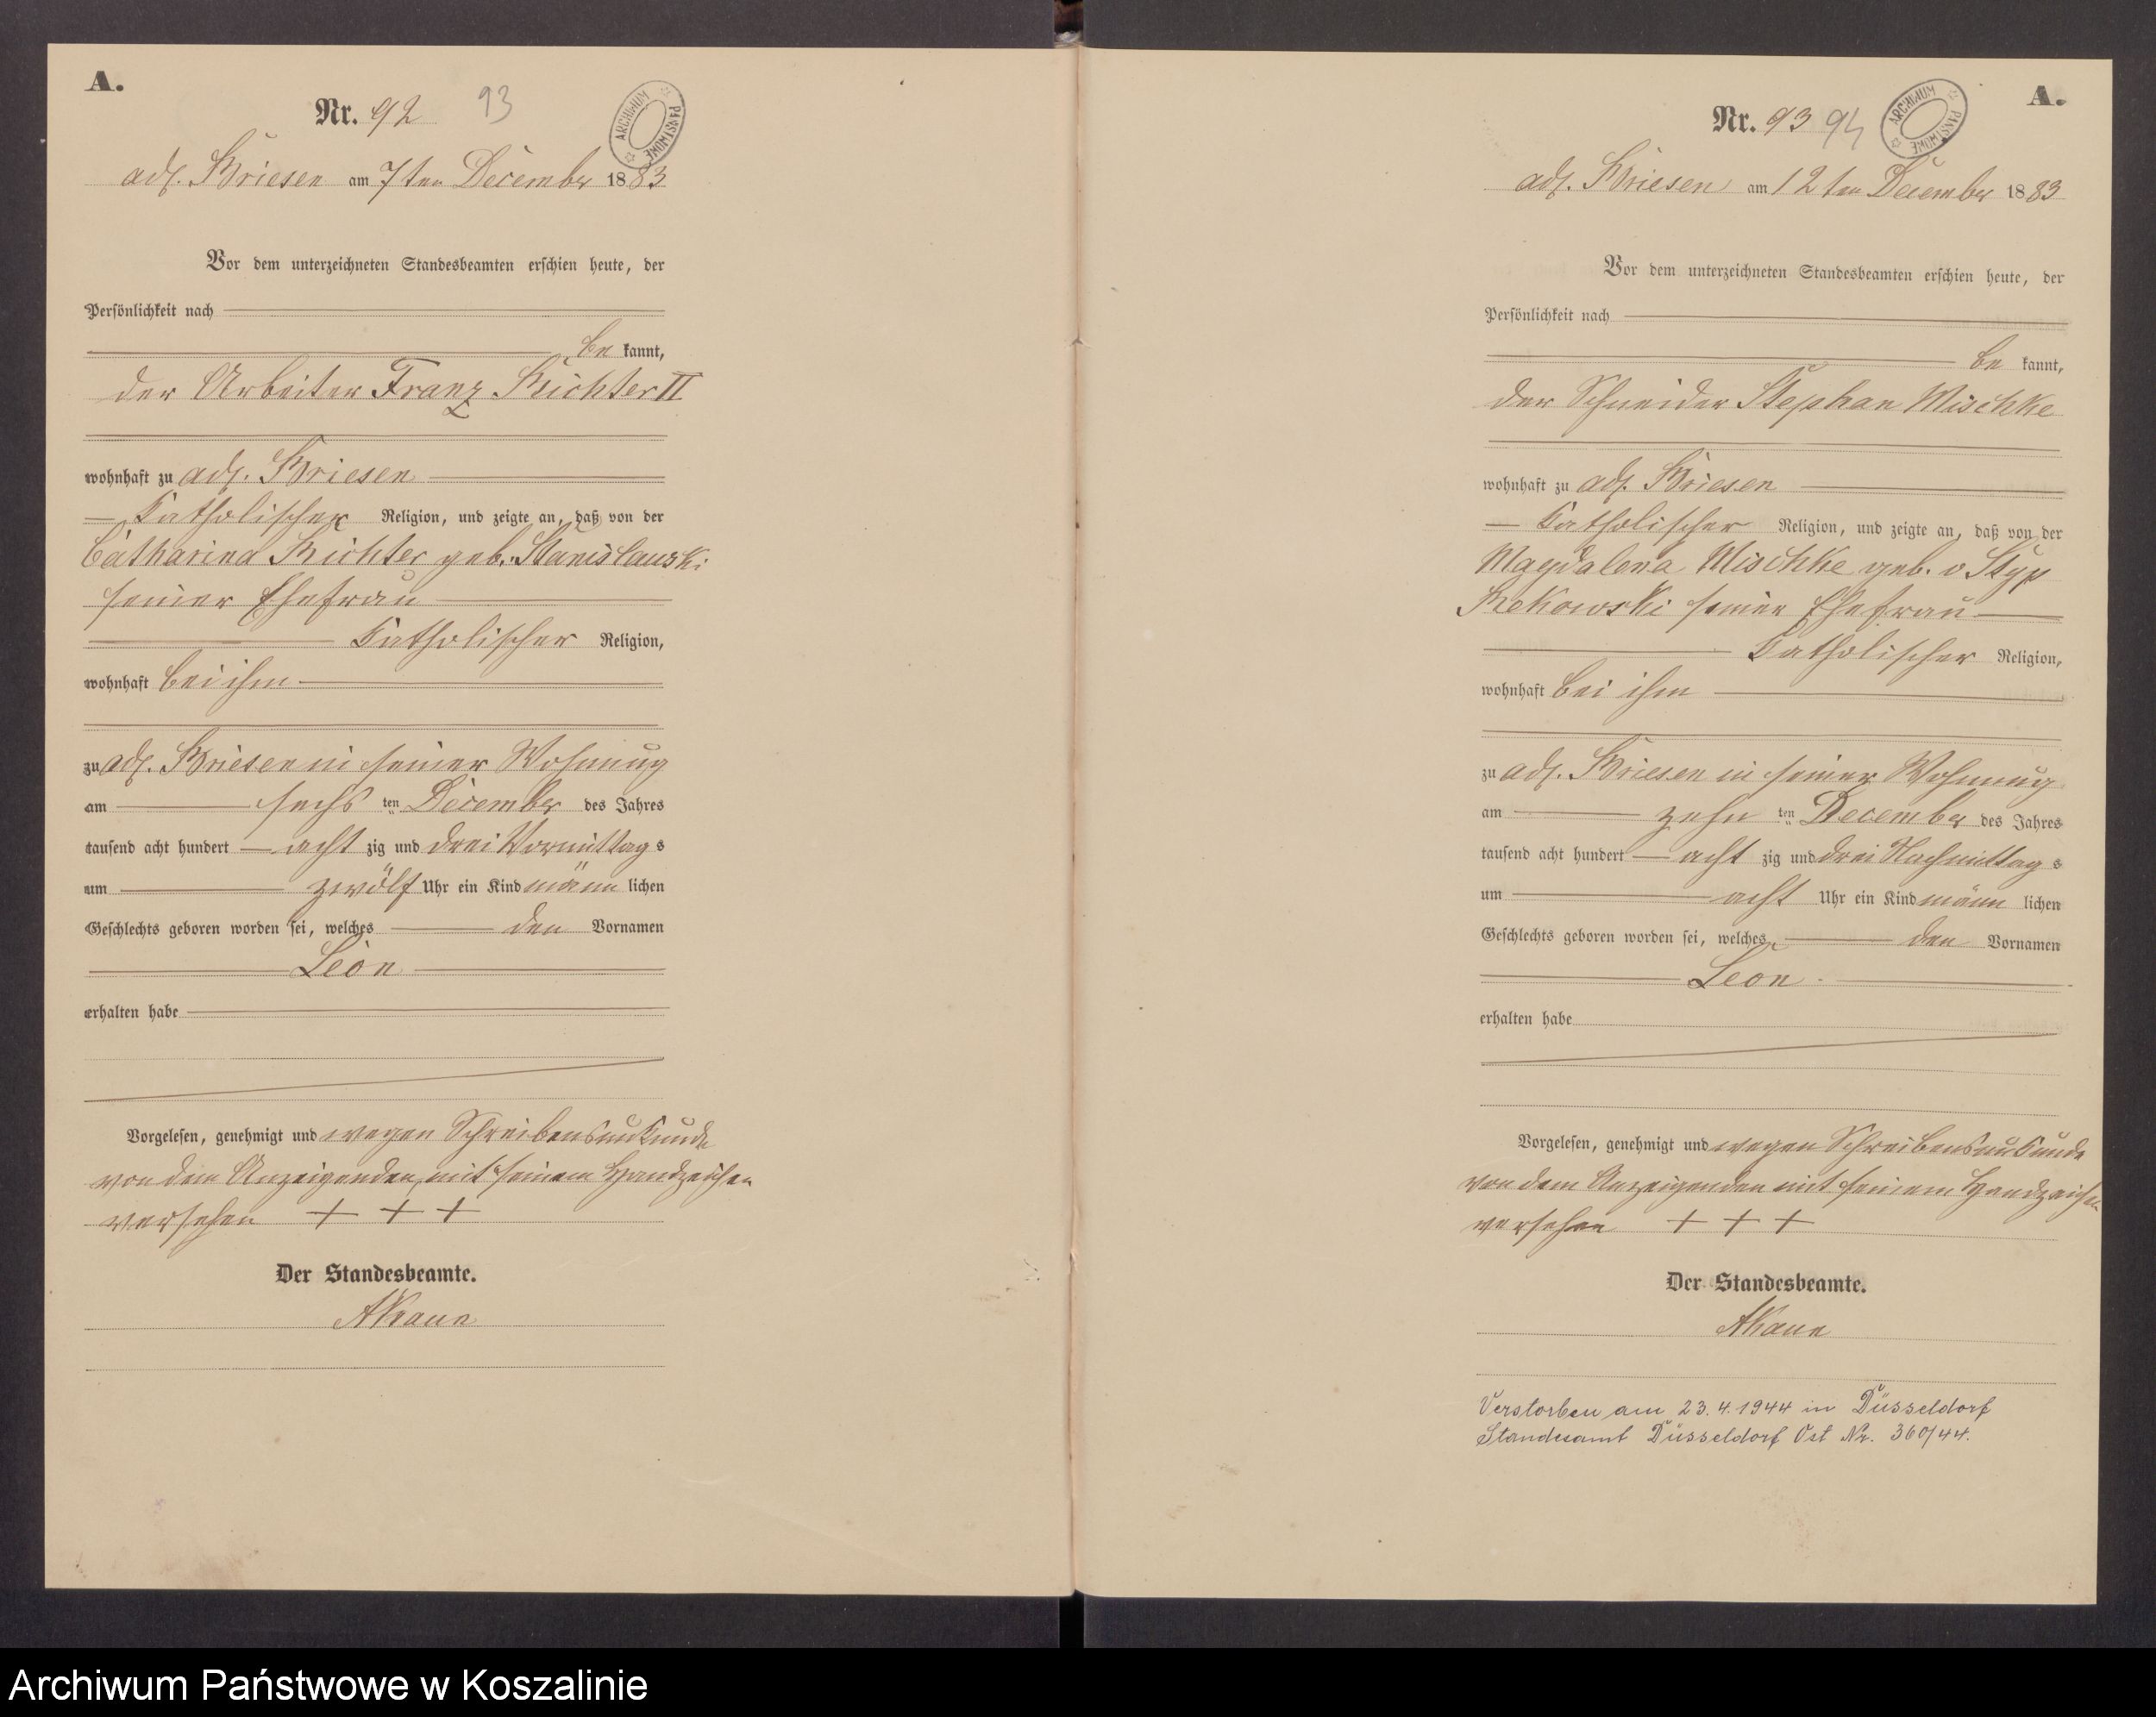 A.
Nr. 92 93
ARCHIWUM PAŃSTWOWE
adl. Briesen am 7ten December 1883
Vor dem unterzeichneten Standesbeamten erschien heute, der
Persönlichkeit nach
be kannt,
der Arbeiter Franz Richter II
wohnhaft zu adl. Briesen
Katholischer Religion, und zeigte an, daß von der
Catharina Richter geb. Stanislawski
seiner Ehefrau
Katholischer Religion,
wohnhaft bei ihm
zu adl. Briesen in seiner Wohnung
am sechs ten December des Jahres
tausend acht hundert acht zig und drei Vormittag s
um zwölf Uhr ein Kind männ lichen
Geschlechts geboren worden sei, welches den Vornamen
Leon
erhalten habe
Vorgelesen, genehmigt und wegen Schreibensunkunde
von dem Anzeigenden mit seinem Handzeichen
versehen + + +
Der Standesbeamte.
A.
Nr. 93 94
ARCHIWUM PAŃSTWOWE
adl. Briesen am 12ten December 1883
Vor dem unterzeichneten Standesbeamten erschien heute, der
Persönlichkeit nach
be kannt,
der Schneider Stephan Mischke
wohnhaft zu adl. Briesen
Katholischer Religion, und zeigte an, daß von der
Magdalena Mischke geb. v Styp
Rekowski seiner Ehefrau
Katholischer Religion,
wohnhaft bei ihm
zu adl. Briesen in seiner Wohnung
am zehn ten December des Jahres
tausend acht hundert acht zig und drei Nachmittag s
um acht Uhr ein Kind männ lichen
Geschlechts geboren worden sei, welches den Vornamen
Leon
erhalten habe
Vorgelesen, genehmigt und wegen Schreibensunkunde
von dem Anzeigenden mit seinem Handzeichen
versehen + + +
Der Standesbeamte.
Verstorben am 23.4.1944 in Düsseldorf
Standesamt Düsseldorf Ost Nr. 360/44.
Archiwum Państwowe w Koszalinie